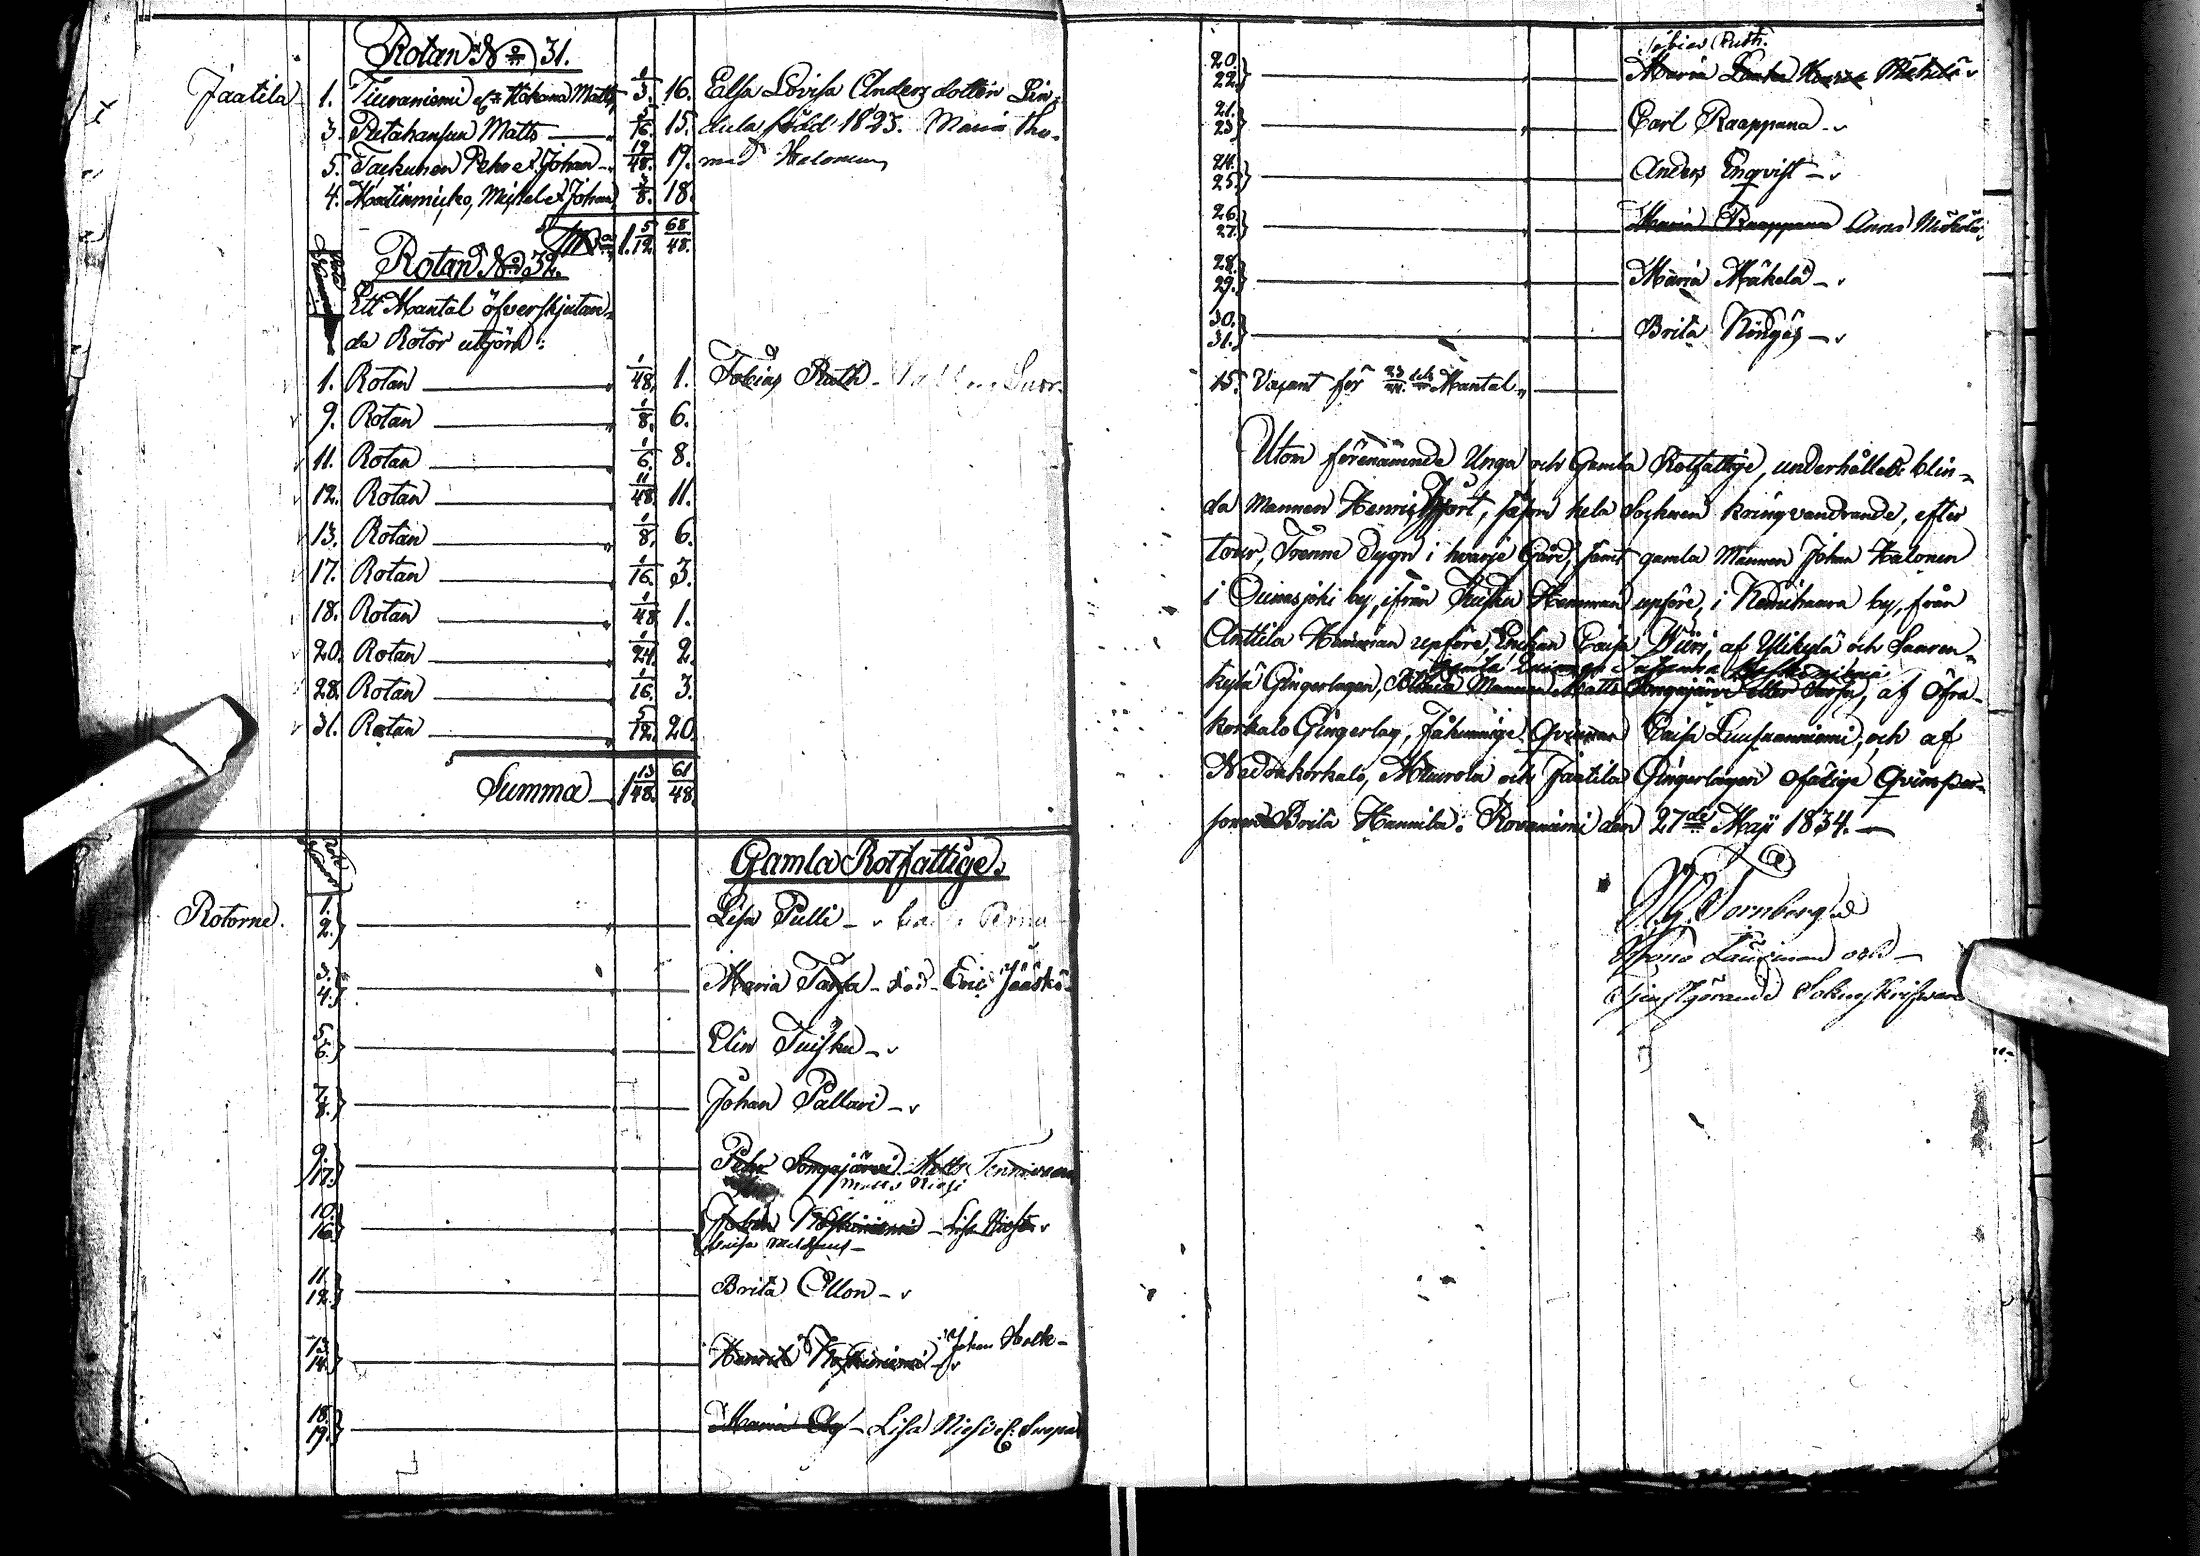 Rotan N:o 31.
Jaatila 1. Tiuraniemi Matts 1/3. 16. Elsa Lovisa Andersdotter Lin-
3. Pietahansun Matts 5/16. 15. dula född 1823. Maria Tho-
5. Taekunen Pehr et Johan 19/48. 19. mad Halonen
4. Martinmicko, Mickel et Johan 3/8. 18.
S:ma 1 5/12 68/48.
Rotan N:o 32.
Ett Mantal öfverskjutan-
de Rotor utgöra:
1. Rotan 1/48. 1. Tobias Ruth
9. Rotan 1/8. 6.
11. Rotan 1/6. 8.
12. Rotan 11/48. 11.
13. Rotan 1/8. 6.
17. Rotan 1/16. 3.
18. Rotan 1/48 1.
20. Rotan 1/24. 2.
28. Rotan 1/16. 3.
31. Rotan 5/12. 20.
Summa 1 13/48. 61/48.
Gamla Rotfattige.
Rotorne. 1. 2. Lisa Pulli
3. 4. Maria Tarsa - död - Eric Jääskö
5. 6. Elin Tuisku
7. 8. Johan Pallari
9. 17. Pehr Songajärvi Matts Tennivaara
Matts Niesi
10. 16. Johan Koskiniemi - Lisa
Caisa
11. 12. Brita Ollon
13. 14. Henrik Koskiniemi Johan
18. 19. Maria - Lisa Niesi
Tobias Ruth.
20. 22. Maria Mäkelä
21. 23. Carl Raappana
24. 25. Anders Enqvist
26. 27. Maria Raappana Anna Mäkelä
28. 29. Maria Mäkelä
30. 31. Brita Köngäs
15. Vacant för 23/24 Mantal
Utom förenämnde Unga och Gamla Rotfattige, underhålles blin-
da mannen Henric Hjort, såsom hela Socknen kringvandrande, efter
tour, Trenne Dygn i hvarje Gård, samt gamla Mannen Johan Halonen
i Ounasjoki by, ifrån Tuisku Hemman upföre, i Kemihaara by, från
Anttila Hemman upföre, Enkan Caisa Niesi, af Ylikylä och Saaren-
gamla Qvinnan
kylä Gingerlagen, Blinda Mannen Matts Songajärvi eller Tarsa, af Öfra-
korkalo Gingerlag, Fåhunnige Qvinnan Caisa Luusuanniemi, och af
Nedankorkalo, Muurola och Jaatila Gingerlagen ofärige Qvinsper-
sonen Brita Hannila. Rovaniemi den 27de Maji 1834.
Tornberg
Länsman och
Tjenstgörande Sokneskrifvare